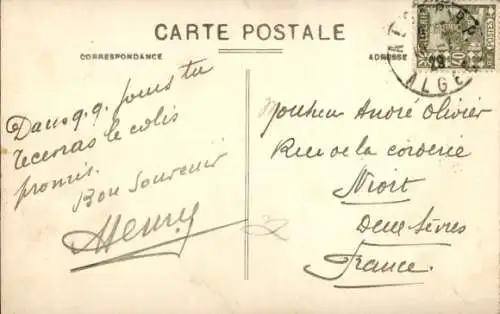 CARTE POSTALE
CORRESPONDANCE
ADRESSE
Dans q.q. jours tu
recevras le colis
promis.
Bon Souvenir
Henry
Monsieur André Olivier
Rue de la corderie
Niort
Deux Sèvres
France.
ALGE